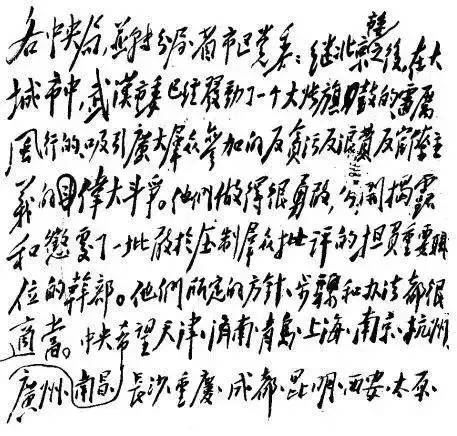 各中央局,並轉分局、省市區党委:继北京之後,在大
城市中,武漢市委已经發動了一个大张旗鼓的雷厲
風行的、吸引廣大群众參加的反貪污反浪費反官僚主
義的偉大斗爭。他們做得很勇敢,公開揭露
和懲處了一批敢於压制群众批评的担負重要職
位的幹部。他們所定的方針、步驟和办法都很
適當。中央希望天津、濟南、青島、上海、南京、杭州、
廣州、南昌、長沙、重慶、成都、昆明、西安、太原、